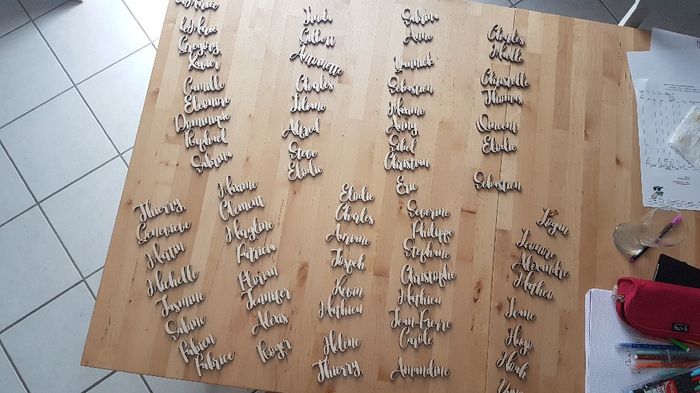 Valérie
Gregory
Xavier
Camille
Eleonore
Dominique
Raphael
Sabrina
Gilbert
Amandine
Charles
Liliane
Alfred
Steve
Elodie
Sabrina
Anne
Yannick
Sebastien
Maxime
Anny
Sibel
Christian
Eric
Charles
Christelle
Thomas
Quincent
Elodie
Sebastien
Thierry
Genevieve
Marion
Michelle
Jasmine
Sabine
Fabien
Fabrice
Clement
Patricia
Florian
Jennifer
Alexis
Roger
Elodie
Charles
Ariane
Joseph
Kevin
Mathieu
Helène
Thierry
Severine
Philippe
Stephane
Christophe
Mathieu
Jean-Pierre
Carole
Amandine
Logan
Leonine
Alexandre
Matheo
Jeanne
Hugo
Noah